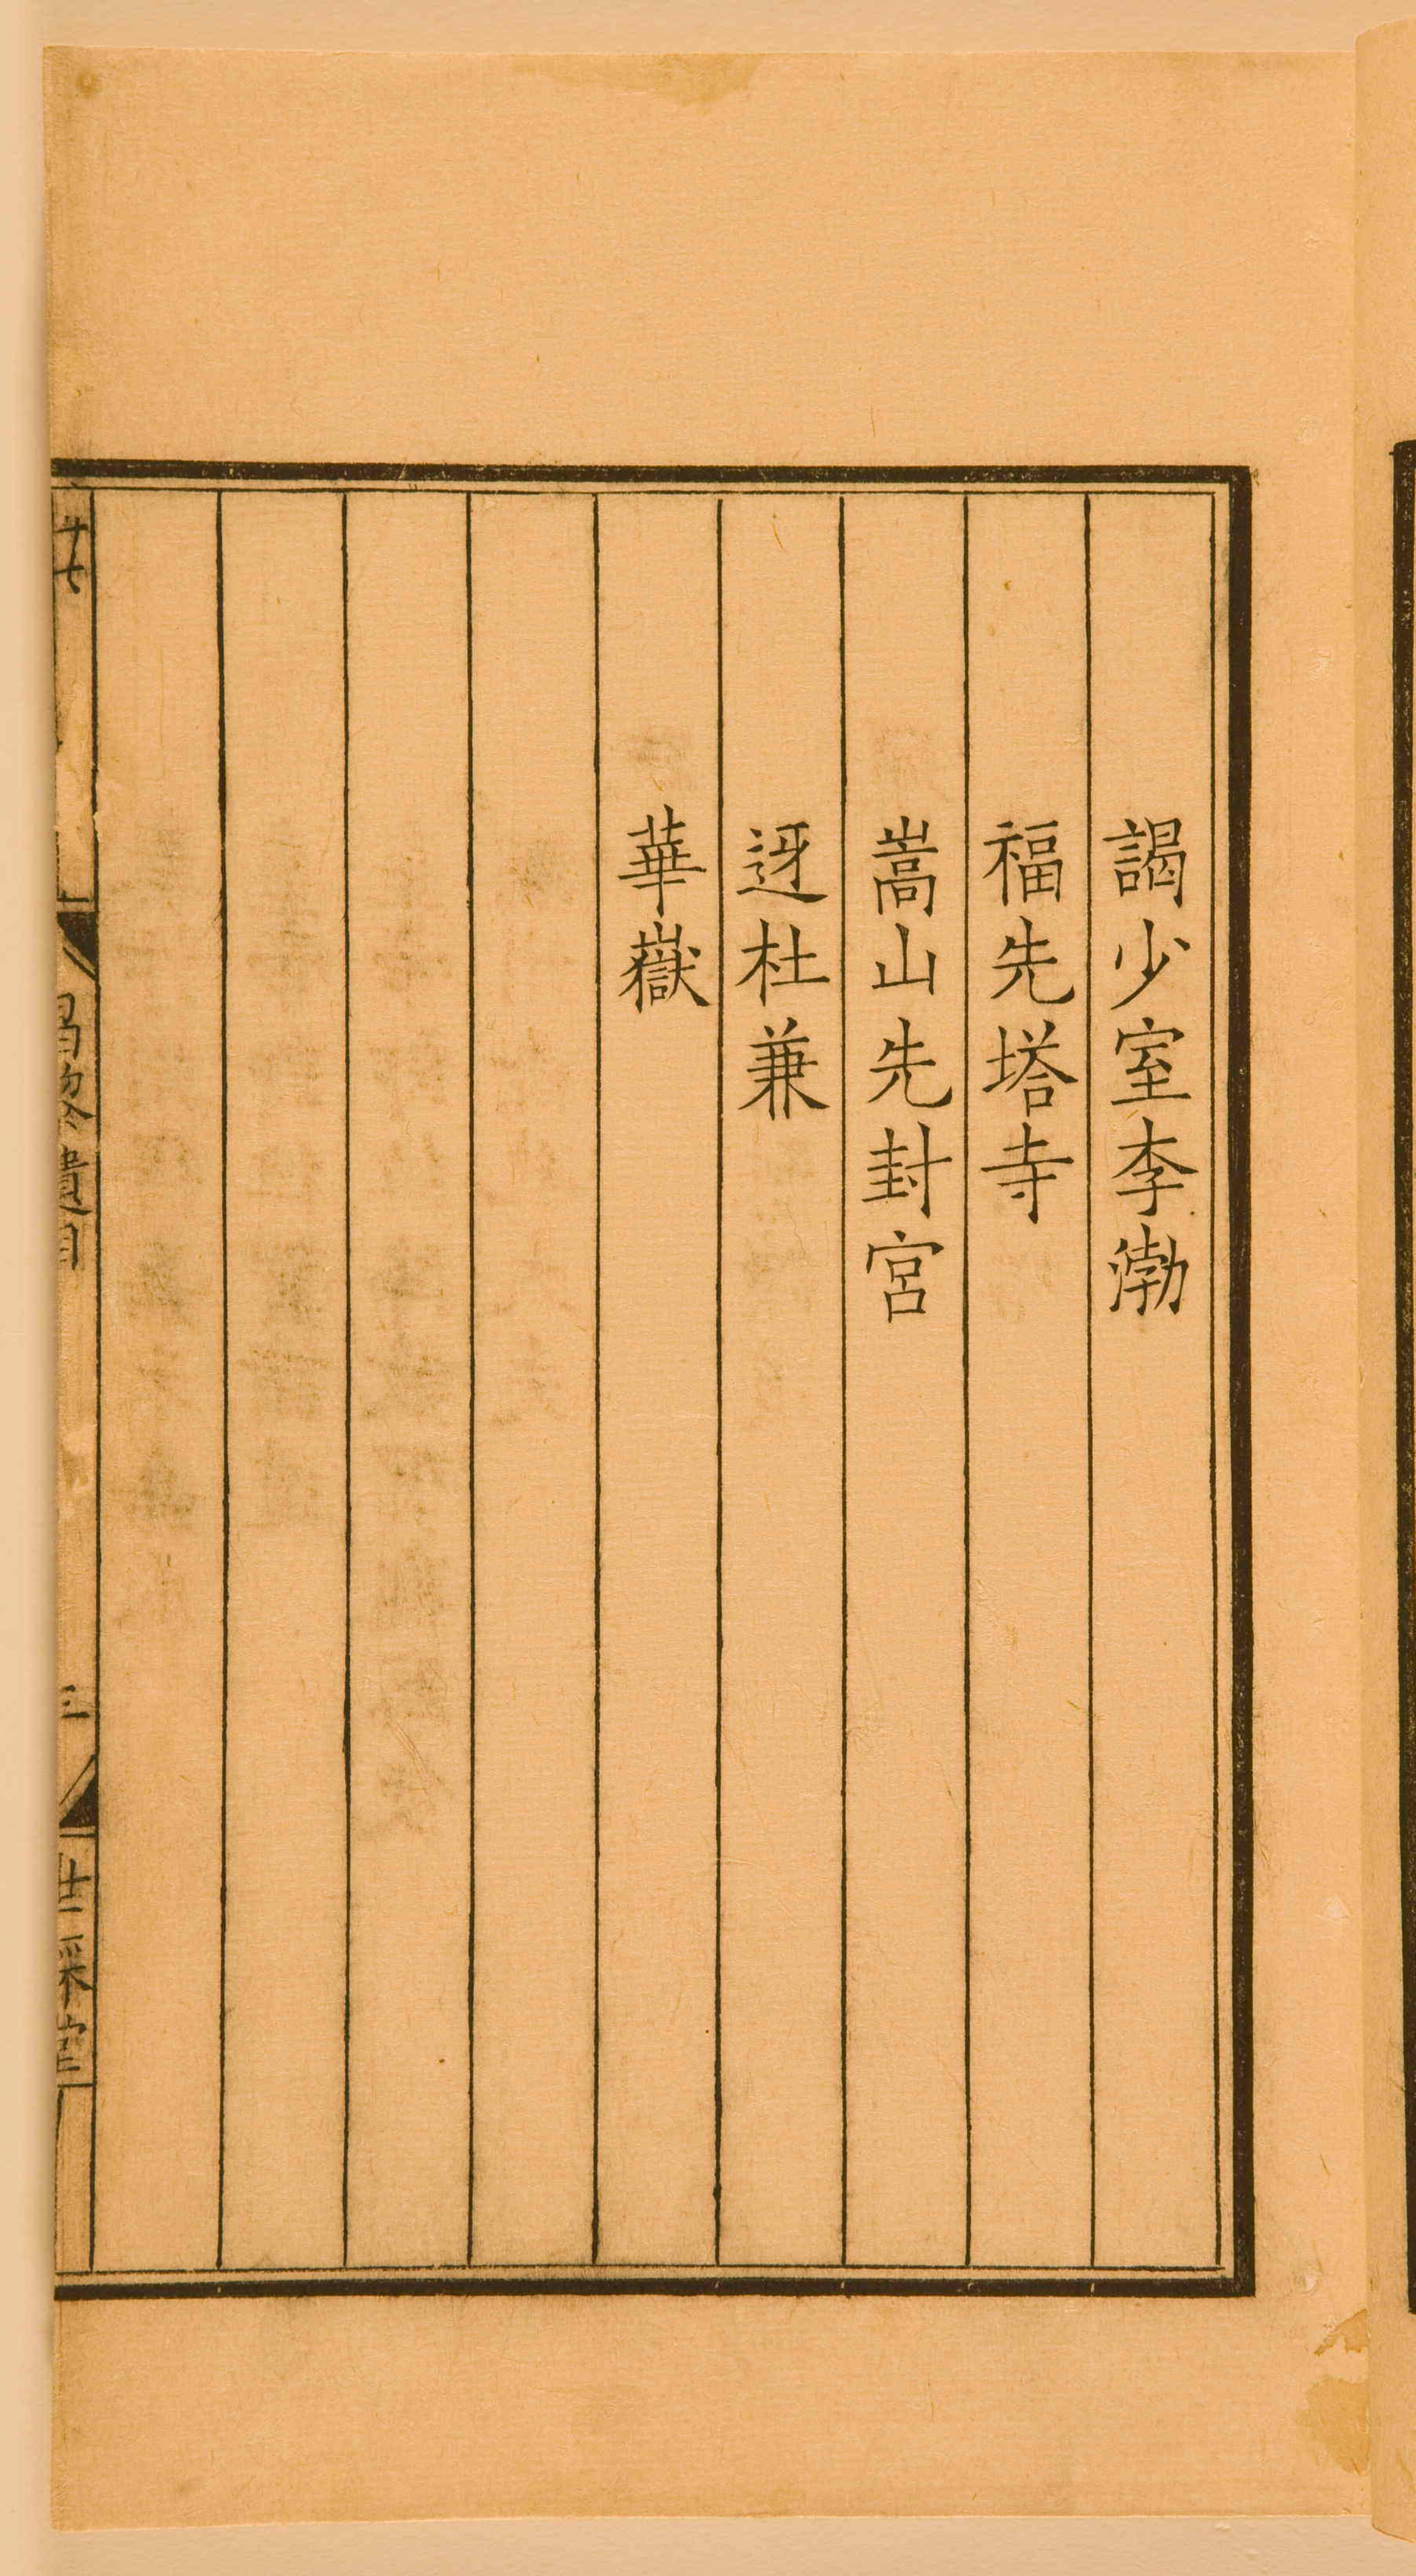 謁少室李渤
福先塔寺
嵩山先封宮
迓杜兼
華嶽
昌黎遺目
三
世綵堂